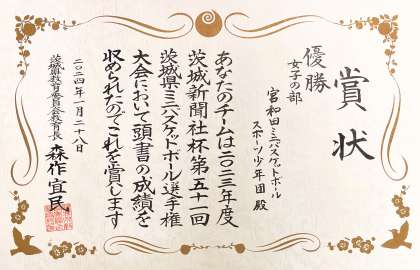 賞状
優勝
女子の部
宮和田ミニバスケットボール
スポーツ少年団殿
あなたのチームは二〇二三年度
茨城新聞社杯第五十一回
茨城県ミニバスケットボール選手権
大会において頭書の成績を
収められたのでこれを賞します
二〇二四年一月二十八日
茨城県教育委員会教育長 森作宜民